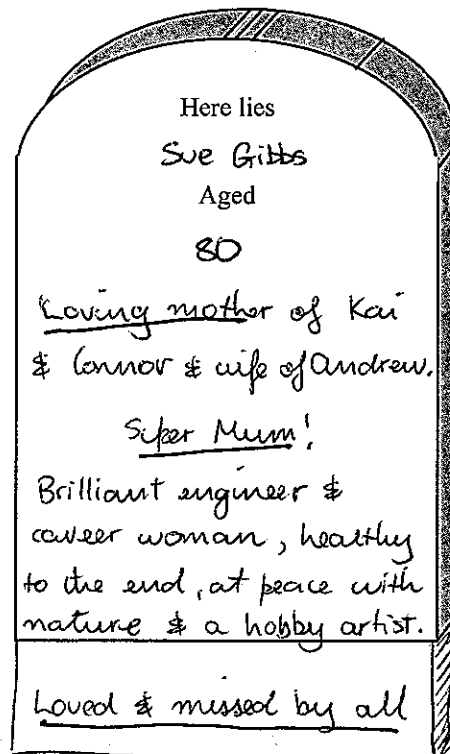 Here lies
Sue Gibbs
Aged
80
Loving mother of Kai
& Connor & wife of Andrew.
Super Mum!
Brilliant engineer &
career woman, healthy
to the end, at peace with
nature & a hobby artist.
Loved & missed by all